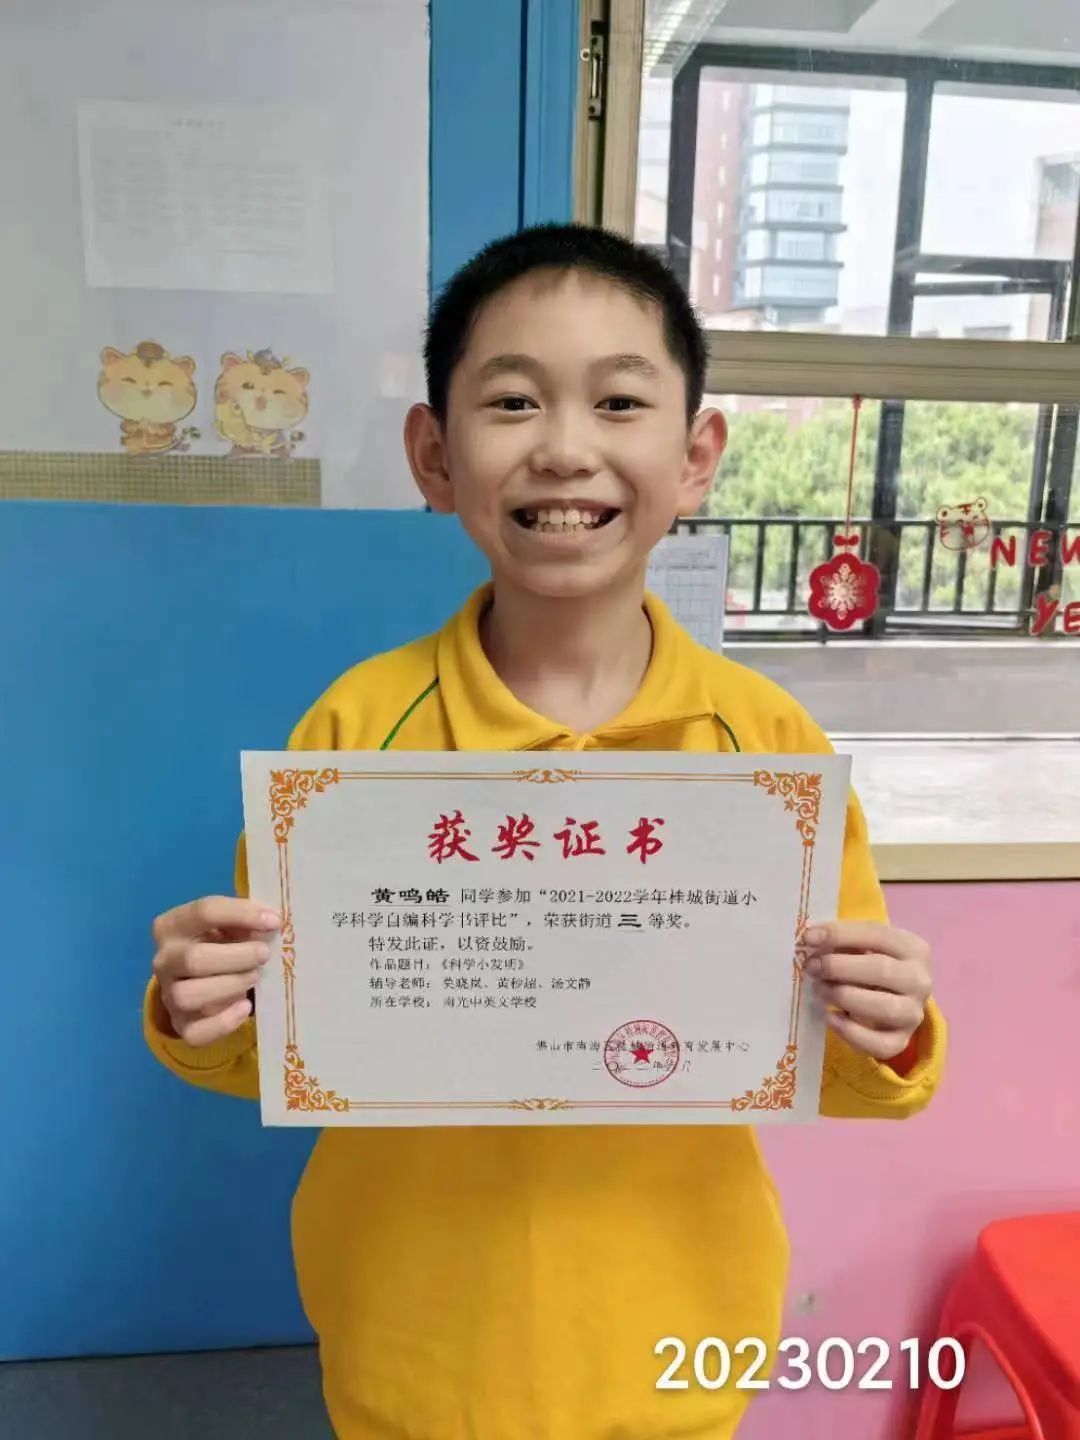 NEW
YE
获奖证书
黄鸣皓 同学参加“2021-2022学年桂城街道小
学科学自编科学书评比”，荣获街道 三 等奖。
特发此证，以资鼓励。
作品题目：《科学小发明》
辅导老师：莫晓岚、黄秒超、汤文静
所在学校：南光中英文学校
佛山市南海区桂城街道教育发展中心
20230210